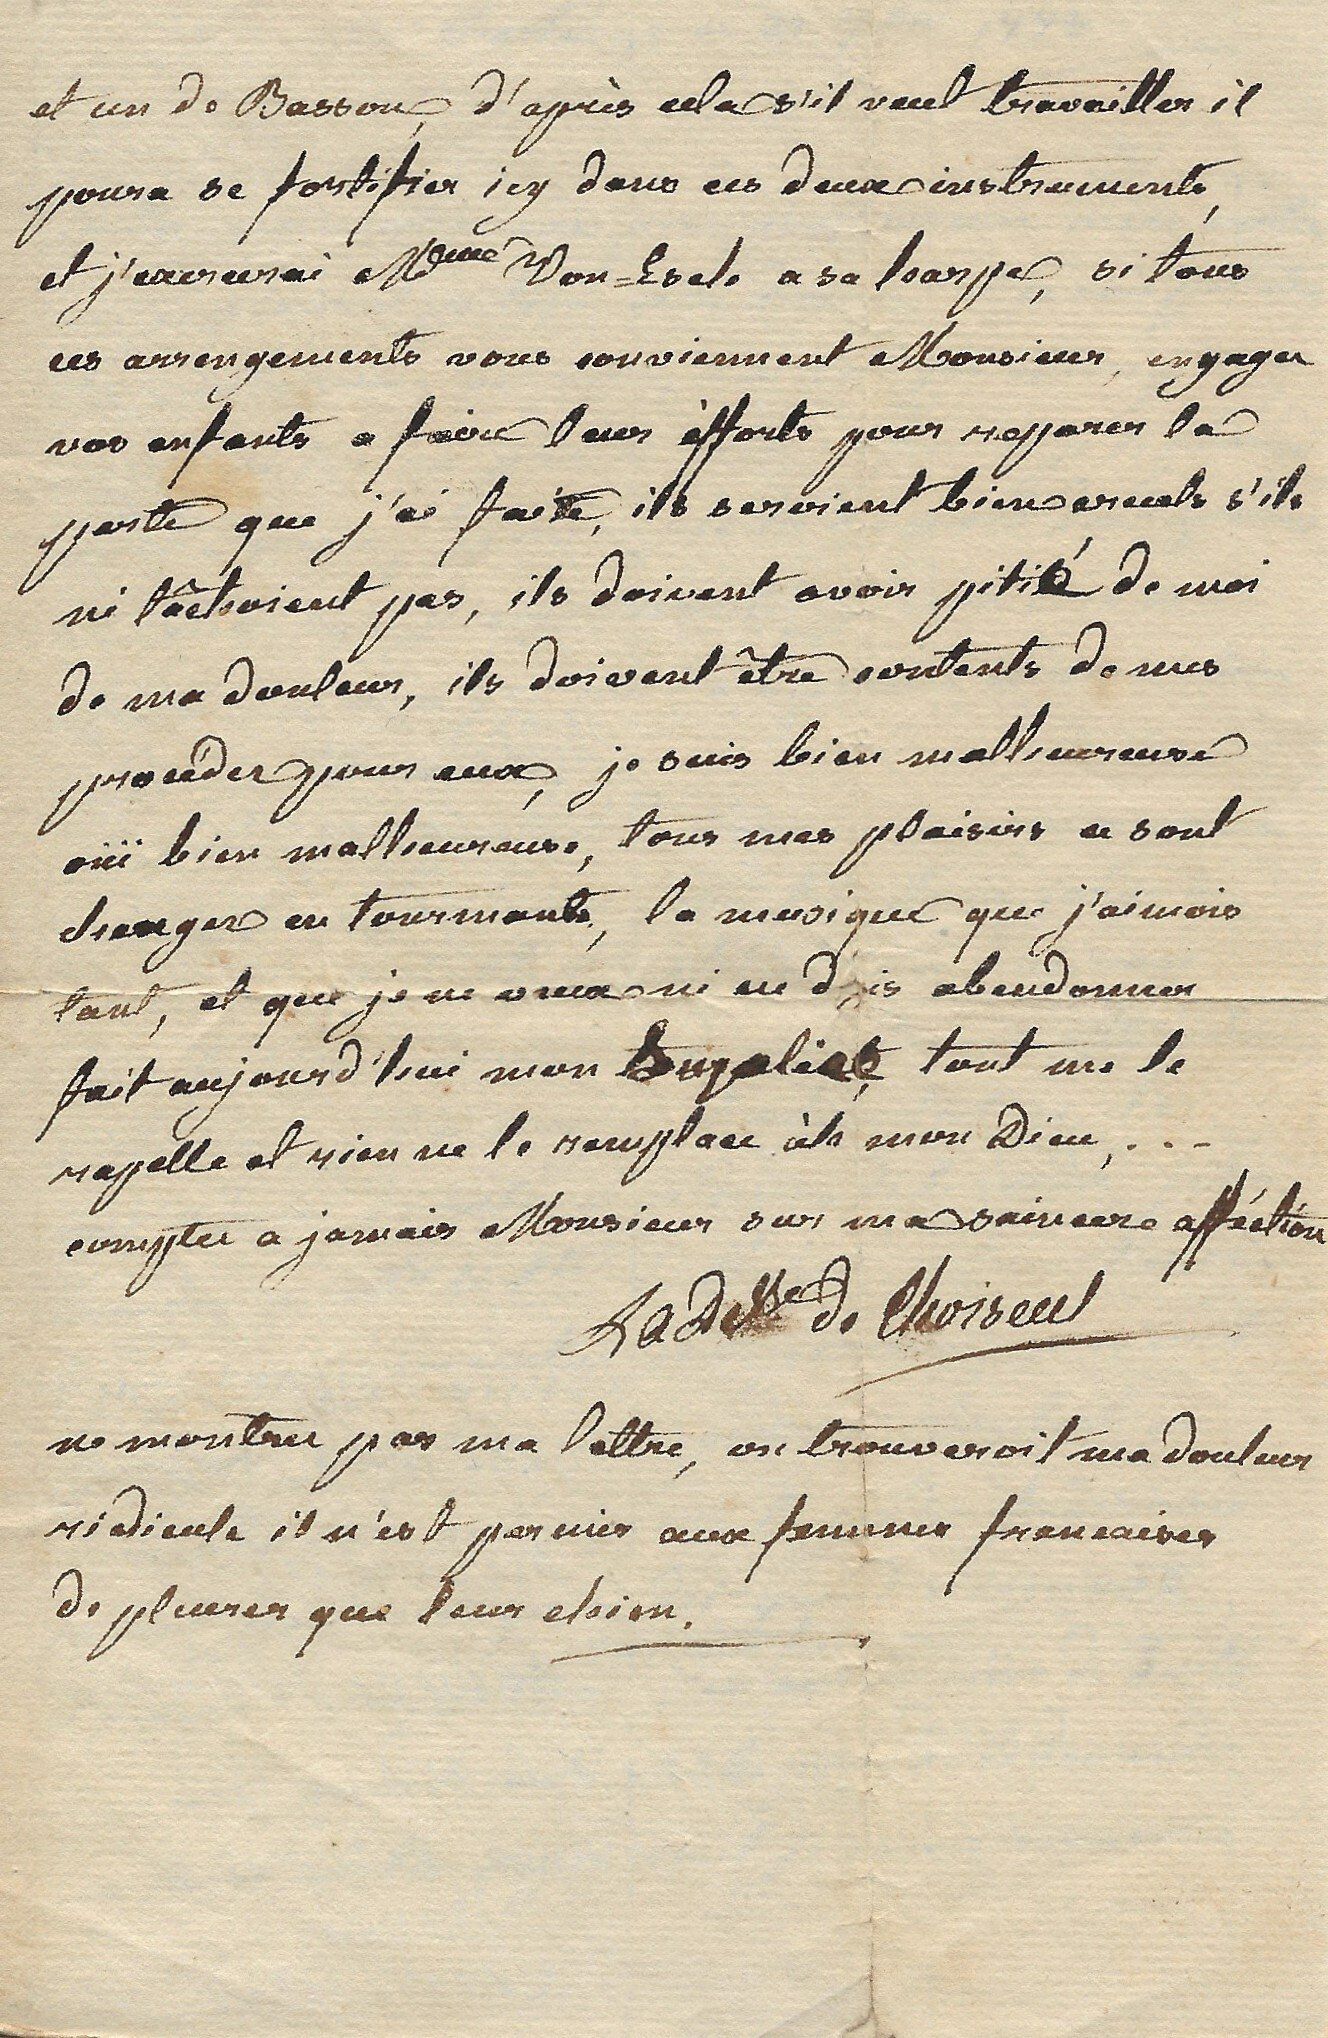 et un de Basson, d'après cela s'il veut travailler il
poura se fortifier icy dans ces deux instruments,
et j'exercerai Mdme Von-Esch a sa harpe, si tous
ces arrengements vous conviennent Monsieur, engager
vos enfants a faire leur èfforts pour reparer la
perte que j'ai faite, ils seroient bien cruels s'ils
ni tâchoient pas, ils doivent avoir pitié de moi
de ma douleur, ils doivent être contents de mes
procéder pour eux, je suis bien malheureuse
oüi bien malheureuse, tous mes plaisirs ce sont
changer en tourments, la musique que j'aimois
tant, et que je ne veux ni ne dois abandonner
fait aujourd'hui mon suplice, tout me le
rapelle et rien ne le remplace àh mon Dieu, . . -
compter a jamais Monsieur sur ma saincere afféction
La Dchsse de Choiseul
ne montrer pas ma lettre, on trouveroit ma douleur
ridicule il n'est permis aux femmes francaises
de pleurer que leur chien.